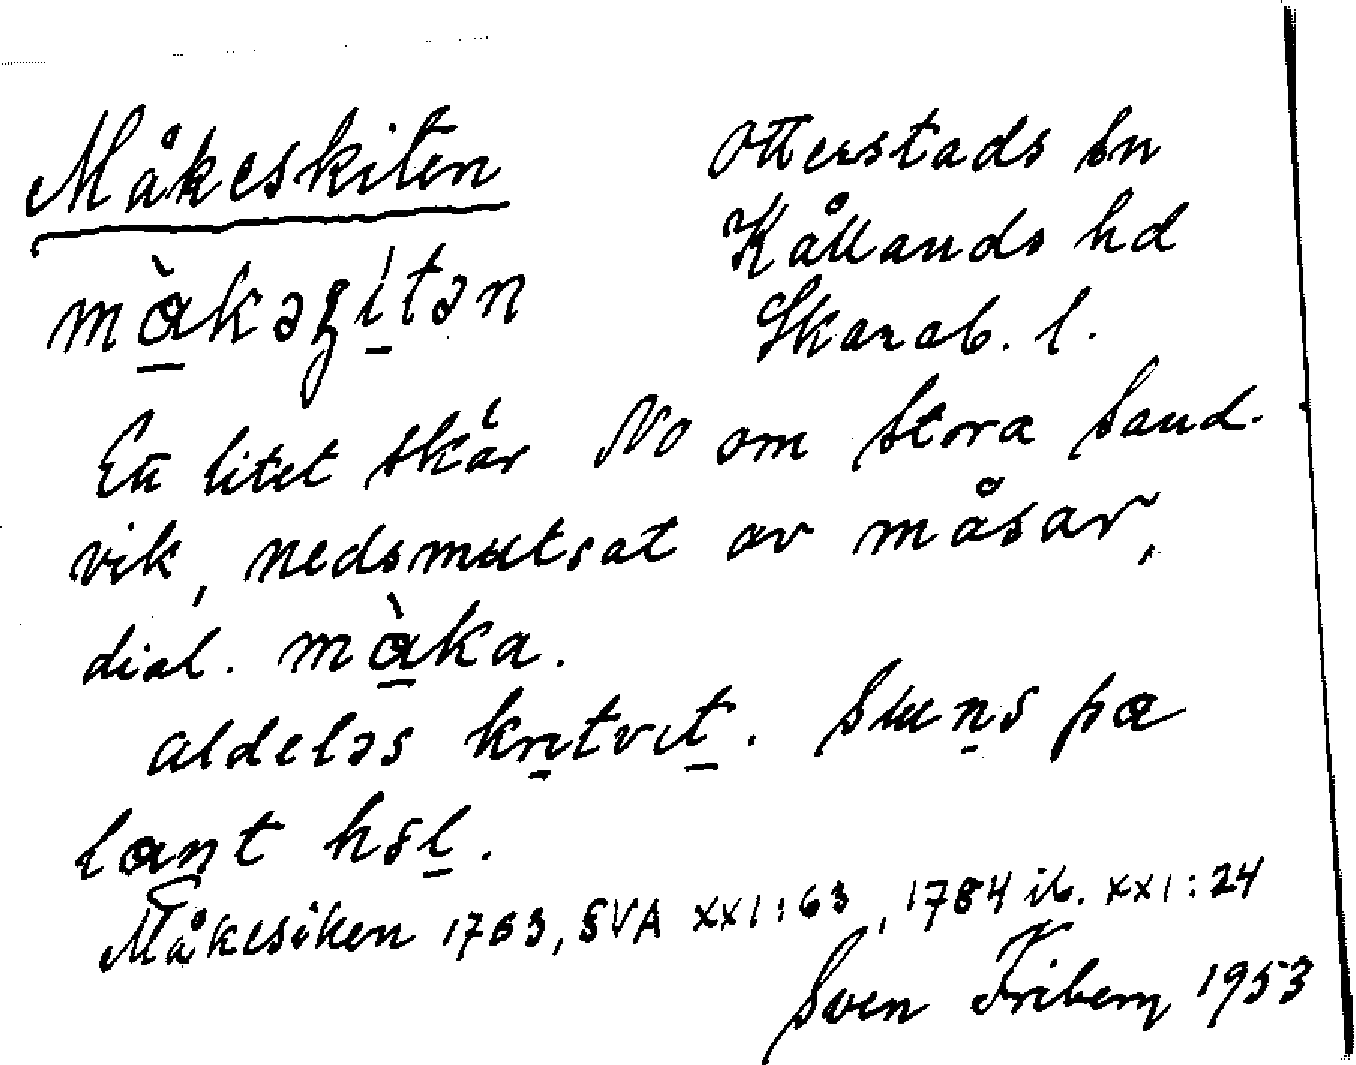 Måkeskiten
Otterstads sn
Kållands hd
Skarab. l.
Ett litet skär NO om Stora Sand-
vik, nedsmutsat av måsar,
dial. mɑ̀ka.
aldeləs kritvit. sʉns pɑ
lɑnt
Måkesiken 1763, SVA XXI:63, 1784 ib. XXI:24
Sven Friberg 1953